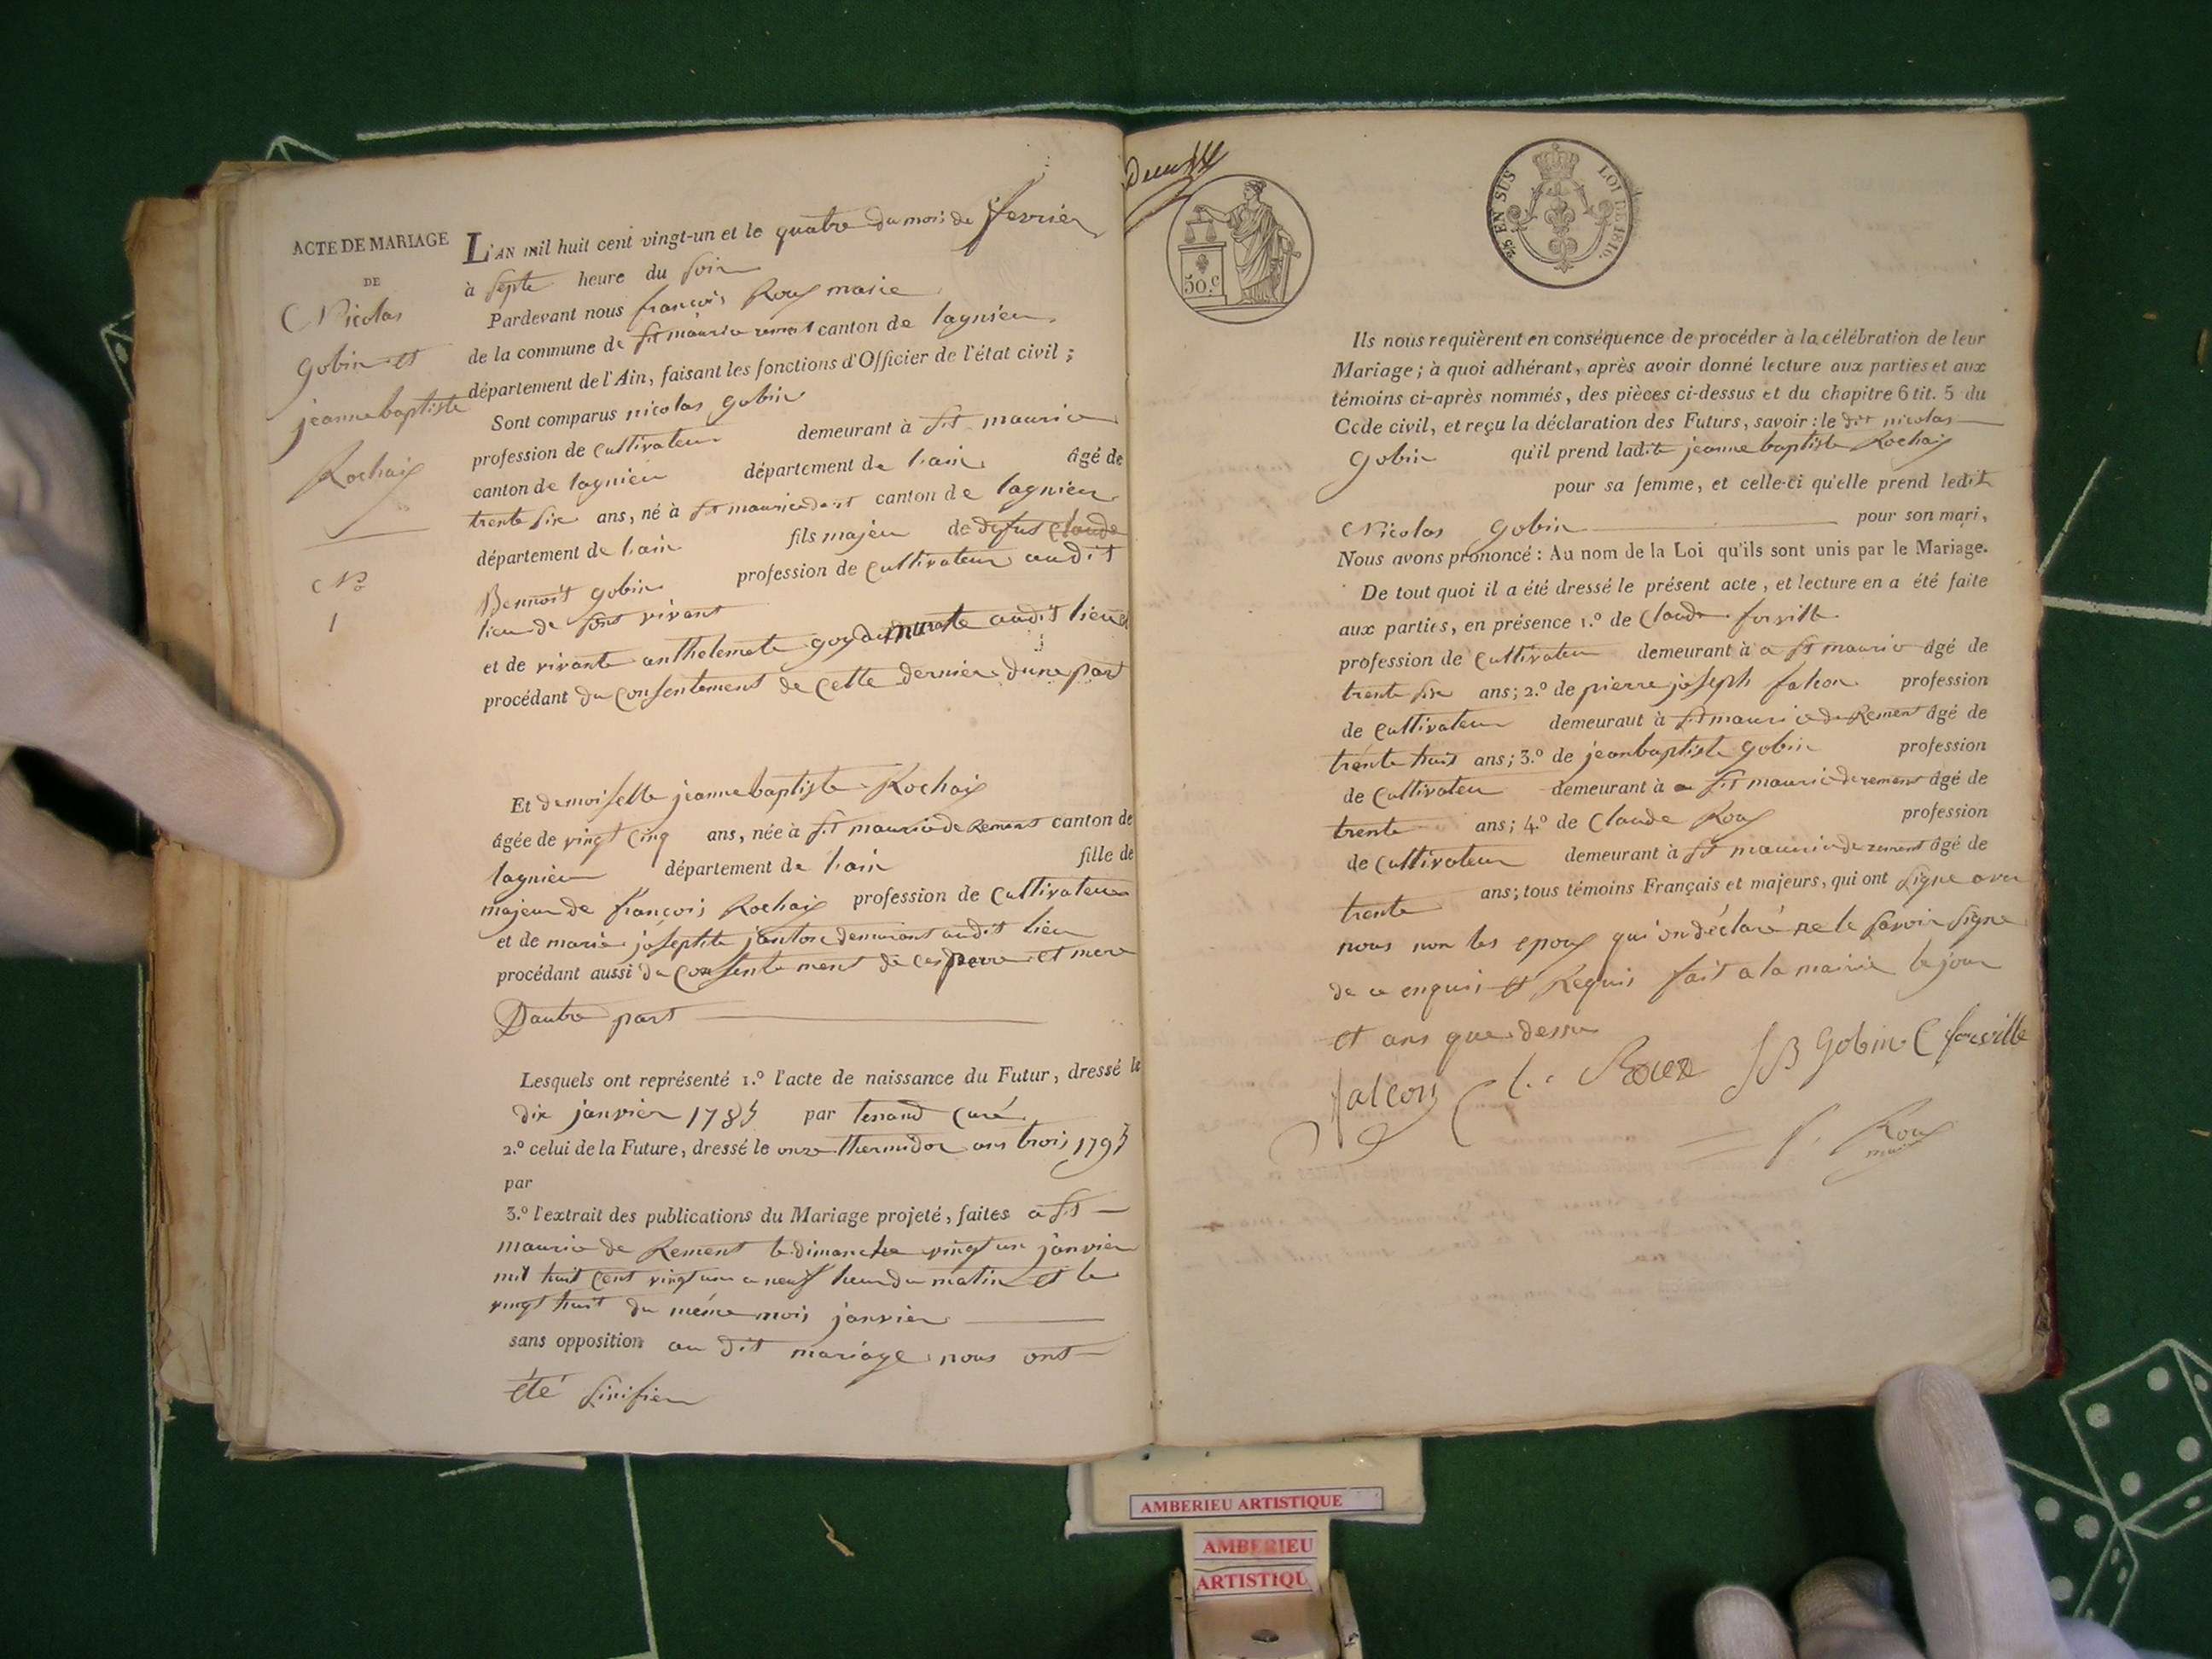 ACTE DE MARIAGE
DE
Nicolas
gobin et
jeanne baptiste
Rochaix
No
1
L'AN mil huit cent vingt-un et le quatre du mois de fevrier
à septe heure du soir
Pardevant nous françois Roux maire
de la commune de st maurice remest canton de lagnieu
département de l'Ain, faisant les fonctions d'Officier de l'état civil ;
Sont comparus nicolas gobin
profession de cultivateur demeurant à st maurice
canton de lagnieu département de lain âgé de
trente six ans, né à st maurice canton de lagnieu
département de lain fils majeu de defus Claude
Bennoit gobin profession de cultivateur audit
lieu de sont vivant
et de vivante anthelemete goy audit lieu
procédant du consentement de cette derniere dune part
Et demoiselle jeanne baptiste Rochaix
âgée de vingt cinq ans, née à st maurice de Remens canton de
lagnieu département de lain fille de
majeur de françois Rochaix profession de cultivateur
et de marie josephte janton demurant audit lieu
procédant aussi du consentement de ces perre et mere
Dautre part
Lesquels ont représenté 1.o l'acte de naissance du Futur, dressé le
dix janvier 1785 par tenand curé
2.o celui de la Future, dressé le onze thermidor ans trois 1795
par
3.o l'extrait des publications du Mariage projeté, faites a st
maurice de Rement le dimanche vingt un janvier
mil huit cent vingt un a neuf heur du matin et le
vingt huit du même mois janvier
sans opposition au dit mariage nous ont
été sinifier
50.c
25 EN SUS LOI DE 1816.
Ils nous requièrent en conséquence de procéder à la célébration de leur
Mariage ; à quoi adhérant, après avoir donné lecture aux parties et aux
témoins ci-après nommés, des pièces ci-dessus et du chapitre 6 tit. 5 du
Code civil, et reçu la déclaration des Futurs, savoir : le dit nicolas
gobin qu'il prend ladite jeanne baptiste Rochaix
pour sa femme, et celle-ci qu'elle prend ledit
Nicolas gobin pour son mari,
Nous avons prononcé : Au nom de la Loi qu'ils sont unis par le Mariage.
De tout quoi il a été dressé le présent acte, et lecture en a été faite
aux parties, en présence 1.o de Claude forville
profession de cultivateu demeurant à a st maurice âgé de
trente six ans ; 2.o de pierre joseph falcon profession
de cultivateur demeurant à st maurice de Rement âgé de
trente huit ans ; 3.o de jean baptiste gobin profession
de cultivateu demeurant à a st maurice de remens âgé de
trente ans ; 4.o de Claude Roux profession
de cultivateur demeurant à st maurice de remens âgé de
trente ans ; tous témoins Français et majeurs, qui ont signe avec
nous non les epoux qui on déclaré ne le savoir signe
de ce enquis et Requis fait a la mairie le jour
et ans que dessu
falcon C. Roux JB Gobin C forville
f. Roux
maire
AMBERIEU ARTISTIQUE
AMBERIEU
ARTISTIQU